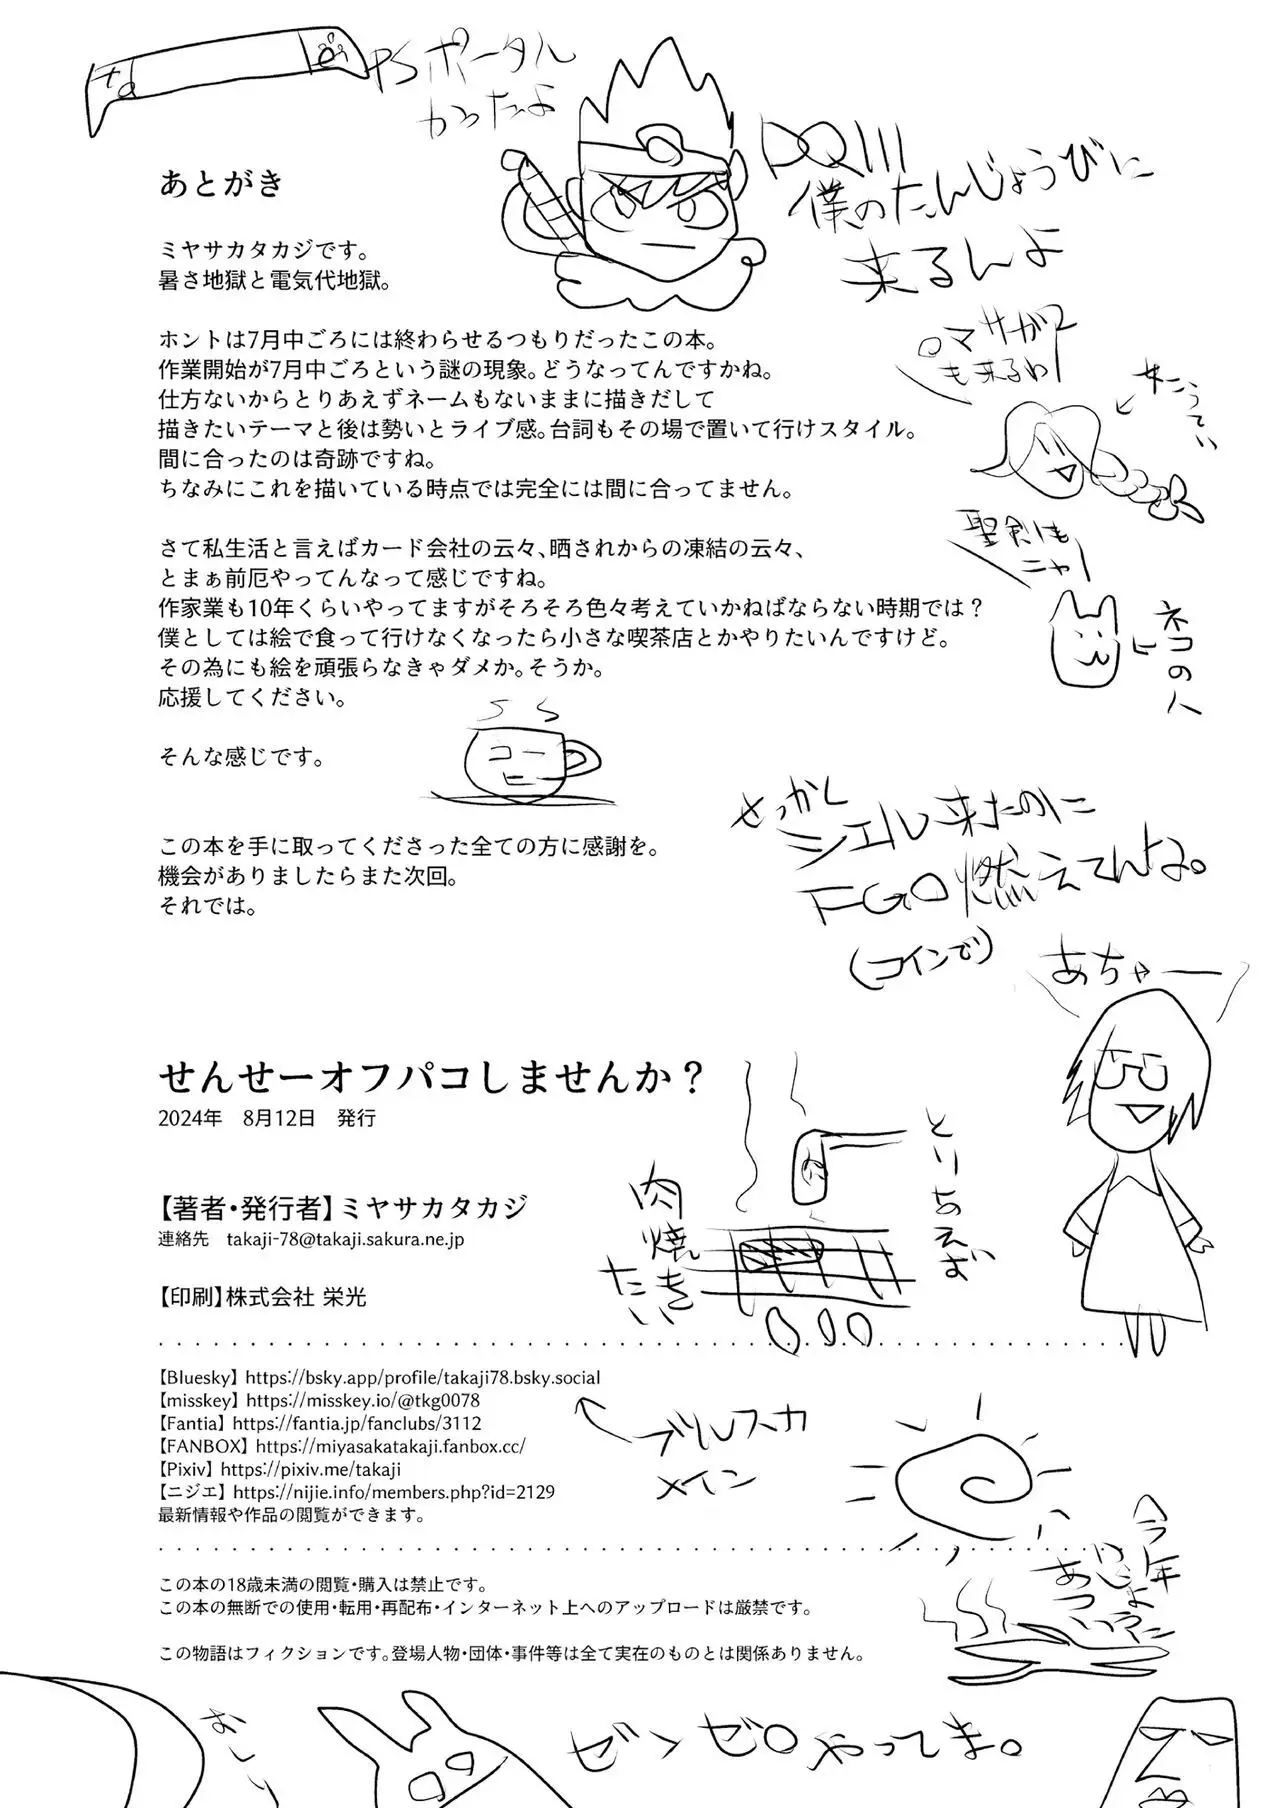 PSポータル
かったよ
DQIII
僕のたんじょうびに
来るんよ
あとがき
ミヤサカタカジです。
暑さ地獄と電気代地獄。
ロマサガ2
も来るわ
ホントは7月中ごろには終わらせるつもりだったこの本。
作業開始が7月中ごろという謎の現象。どうなってんですかね。
仕方ないからとりあえずネームもないままに描きだして
描きたいテーマと後は勢いとライブ感。台詞もその場で置いて行けスタイル。
間に合ったのは奇跡ですね。
ちなみにこれを描いている時点では完全には間に合ってません。
女こうてい
聖剣も
ニャー
ネコの人
さて私生活と言えばカード会社の云々、晒されからの凍結の云々、
とまぁ前厄やってんなって感じですね。
作家業も10年くらいやってますがそろそろ色々考えていかねばならない時期では？
僕としては絵で食って行けなくなったら小さな喫茶店とかやりたいんですけど。
その為にも絵を頑張らなきゃダメか。そうか。
応援してください。
そんな感じです。
コー
ヒー
せっかく
シエル来たのに
FGO燃えてんよ。
(コインで)
あちゃー
この本を手に取ってくださった全ての方に感謝を。
機会がありましたらまた次回。
それでは。
せんせーオフパコしませんか？
2024年　8月12日　発行
とりあえず
肉焼き
たい
【著者・発行者】ミヤサカタカジ
連絡先　takaji-78@takaji.sakura.ne.jp
【印刷】株式会社 栄光
【Bluesky】https://bsky.app/profile/takaji78.bsky.social
【misskey】https://misskey.io/@tkg0078
【Fantia】https://fantia.jp/fanclubs/3112
【FANBOX】https://miyasakatakaji.fanbox.cc/
【Pixiv】https://pixiv.me/takaji
【ニジエ】https://nijie.info/members.php?id=2129
最新情報や作品の閲覧ができます。
ブルスカ
メイン
今年
あつい
この本の18歳未満の閲覧・購入は禁止です。
この本の無断での使用・転用・再配布・インターネット上へのアップロードは厳禁です。
この物語はフィクションです。登場人物・団体・事件等は全て実在のものとは関係ありません。
おしり
ゼンゼロやってま。